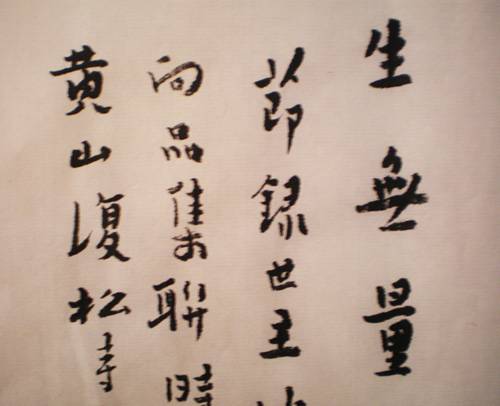 生無量
節録世主
向品集聯時
黄山復松寺